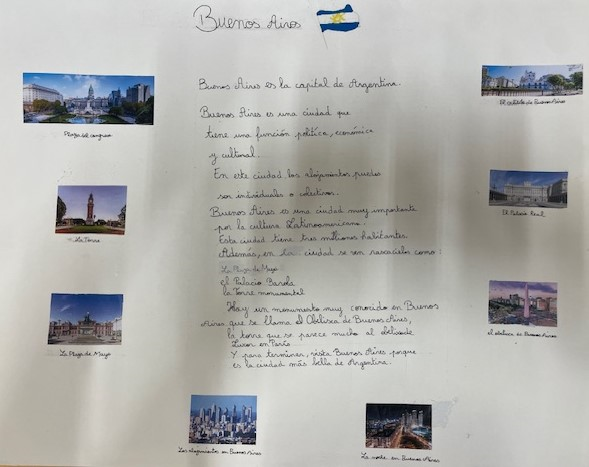 Buenos Aires
Buenos Aires es la capital de Argentina.
Buenos Aires es una ciudad que
tiene una función política, económica
y cultural.
En este ciudad los alojamientos puedes
ser individuales o colectivos.
Buenos Aires es una ciudad muy importante
por la cultura Latinoamericana.
Esta ciudad tiene tres millones habitantes.
Además, en la ciudad se ven rascacielos como:
La Plaza de Mayo
el Palacio Barola
la Torre monumental
Hay un monumento muy conocido en Buenos
Aires que se llama el Obilisco de Buenos Aires,
la torre que se parece mucho al obilisco de
Luxor en París.
Y para terminar, visita Buenos Aires porque
es la ciudad más bella de Argentina.
Plaza del congreso
La Torre
La Plaza de Mayo
Los alojamientos en Buenos Aires
El cabildo de Buenos Aires
El Palacio Real
el obilisco en Buenos Aires
La noche en Buenos Aires